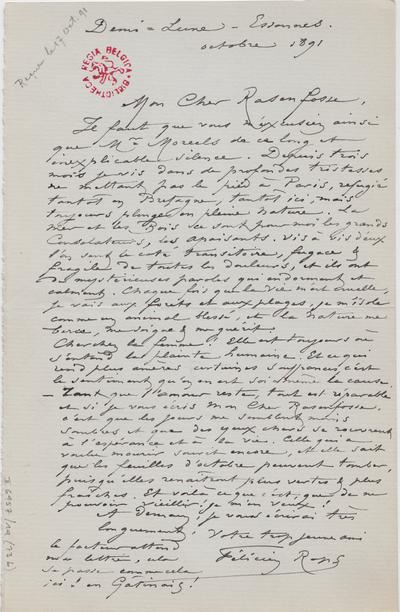 Reçue le 17 Oct. 91
Demi-Lune – Essonnes.
octobre 1891
REGIA BELGICA BIBLIOTHECA
Mon Cher Rassenfosse,
Il faut que vous m'excusiez ainsi
que Mr Moreels de ce long et
inexplicable silence. Depuis trois
mois je vis dans de profondes tristesses
ne mettant pas le pied à Paris, refugié
tantôt en Bretagne, tantôt ici, mais
toujours plongé en pleine nature. La
mer et les Bois ce sont pour moi les grands
Consolateurs, les apaisants. Vis à vis d'eux
l'on sent le coté transitoire, fugace &
fragile de toutes les douleurs, et ils ont
de mystérieuses paroles qui endorment et
calment. Chaque fois que la vie m'est cruelle,
je vais aux forêts et aux plages, je m'isole
comme un animal blessé, et la nature me
berce, me soigne & me guérit.
Cherchez la femme! Elle est toujours où
s'entend la plainte humaine. Et ce qui
rend plus amères certaines c'est
le sentiment qu'on en est soi-même la cause.
– Tant que l'amour reste, tout est réparable
et si je vous écris mon Cher Rassenfosse,
c'est que les jours me semblent moins
sombres et que des yeux chers se rouvrent
à l'espérance et à la vie. Celle qui a
voulu mourir sourit encore, et elle sait
que les feuilles d'octobre peuvent tomber,
puisqu'elles renaîtront plus vertes & plus
fraîches. Et voilà ce que c'est que de ne
pouvoir vieillir! je m'en veux!
A Demain, je vous écrirai très
longuement. Votre trop jeune ami
le facteur attend
ma lettre, cela
se passe comme cela
ici! en Gâtinais!
Félicien Rops